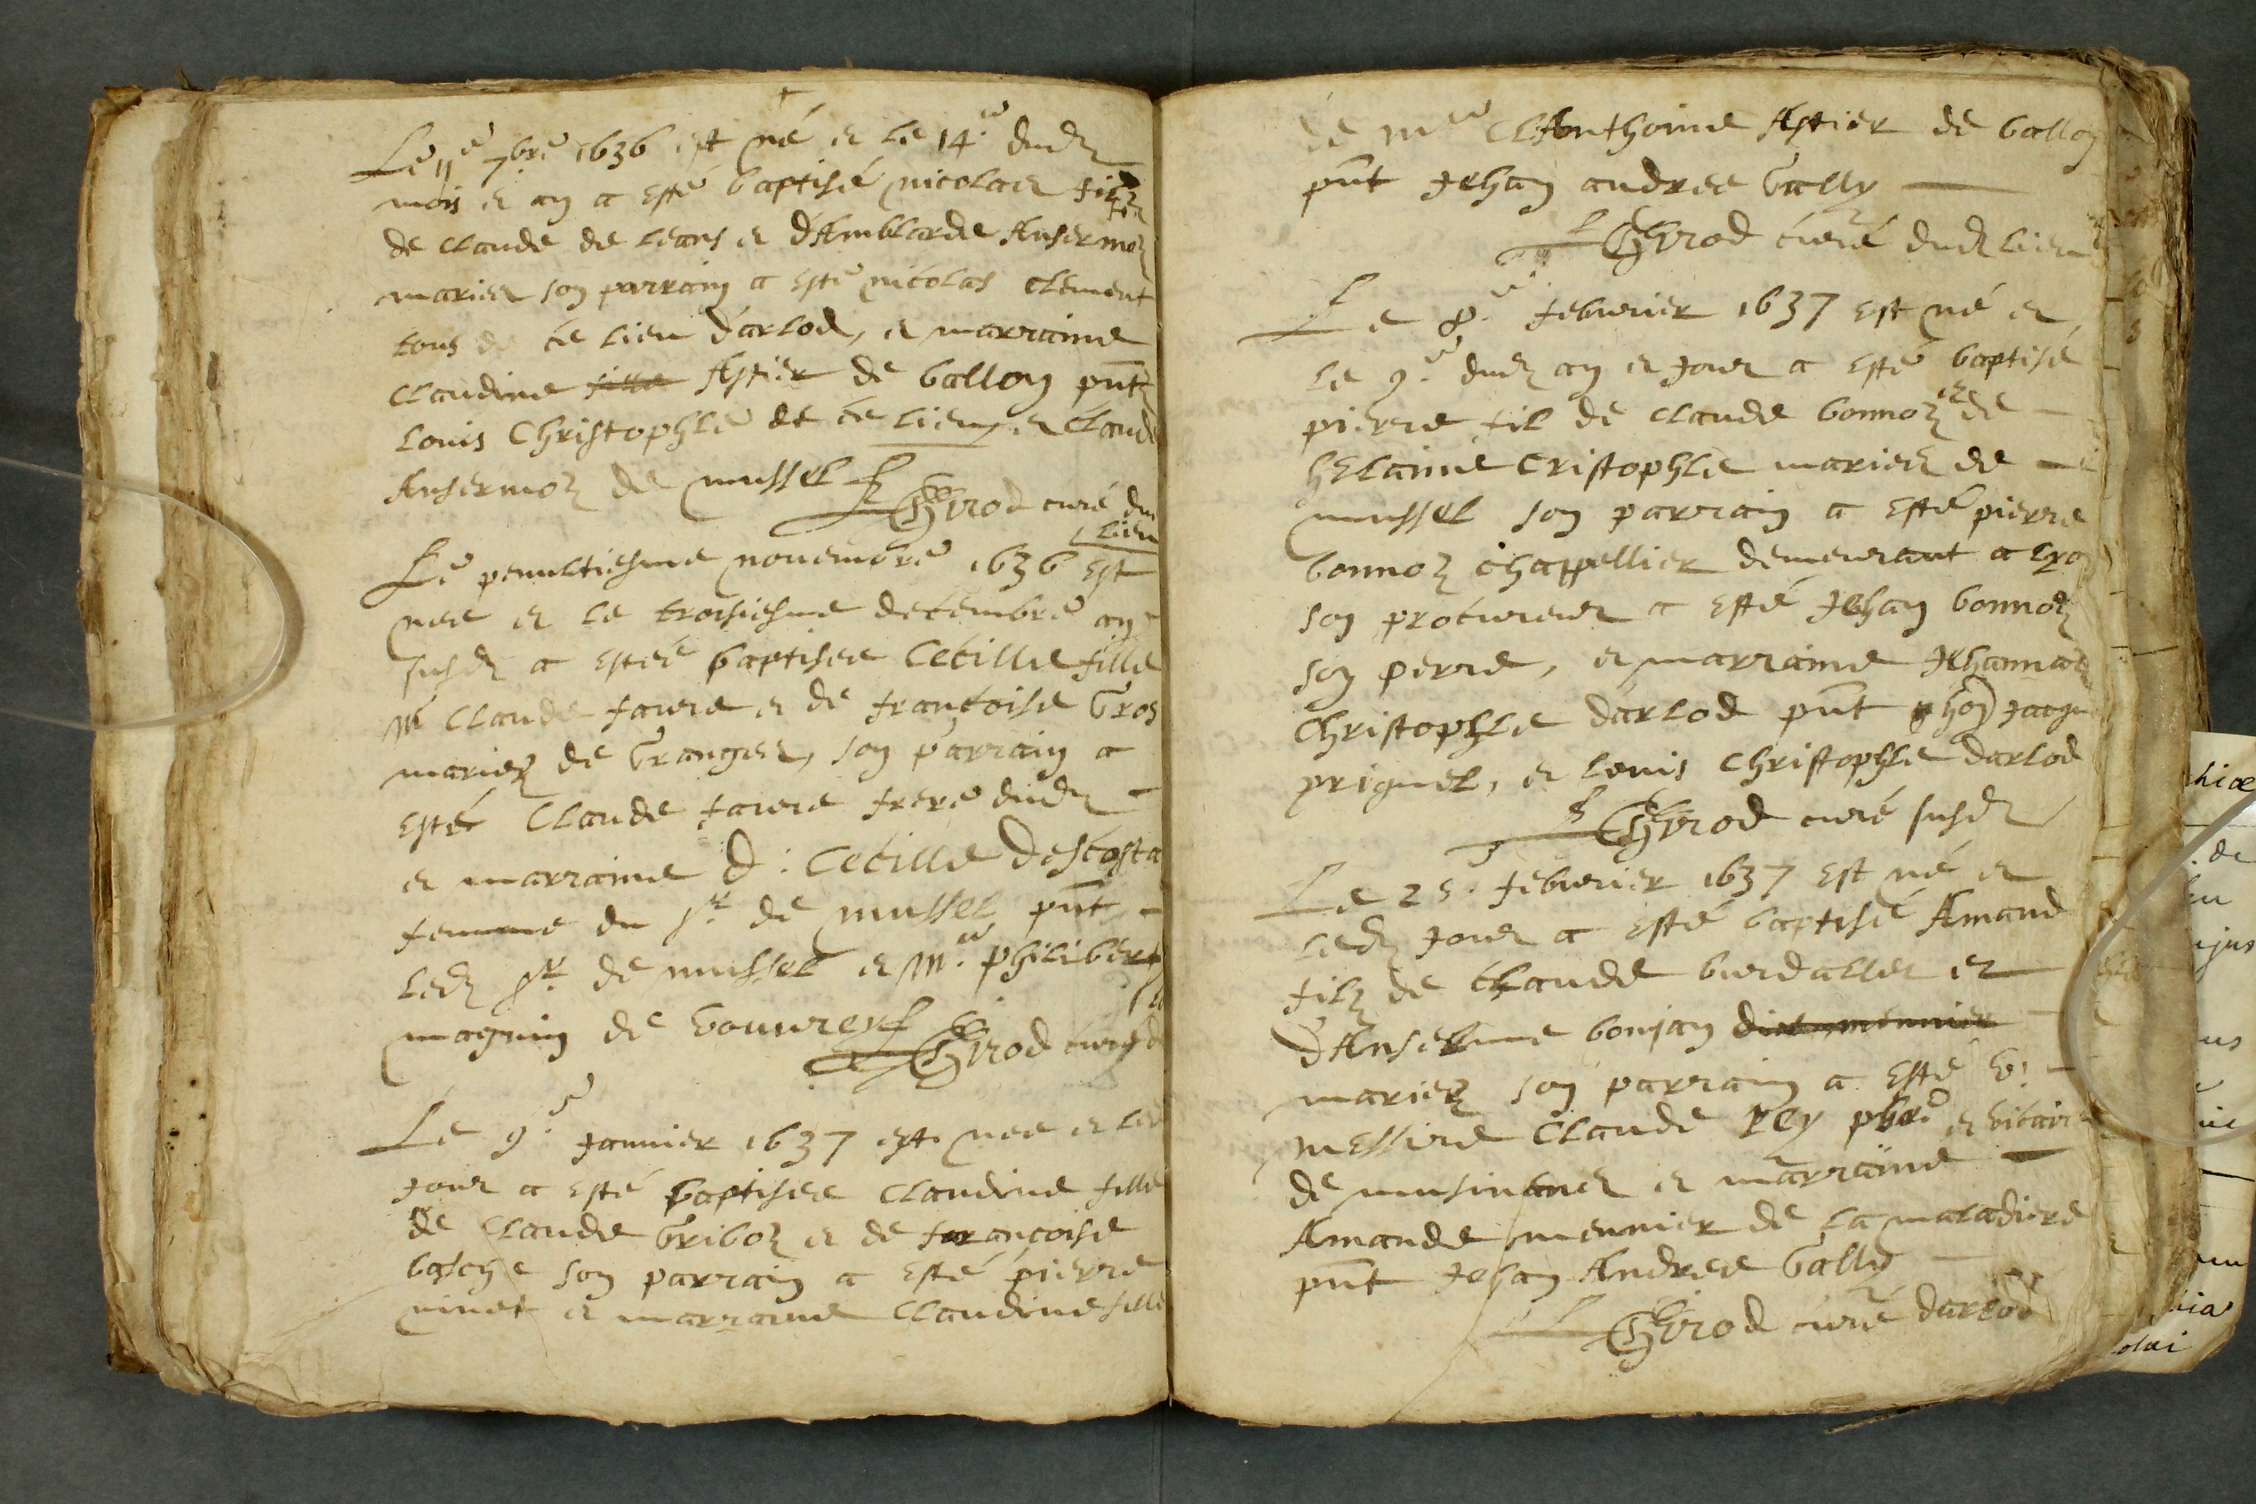 Le 11e 7bre 1636 est né et le 14.e dud
mois et an a esté baptisé nicolas filz
de claude de leans et d'Amblarde Ansermoz
mariez son parrain a esté nicolas clement
tous de ce lieu d'arlod, et marraine
claudine fille Astier de ballon pnt
Louis Christophle de ce lieu, et claude
Ansermoz de mussel
Girod curé du
lieu
Le penultiesme novembre 1636 est
nee et le troisiesme decembre an
susd a estéé baptisee Cecille fille
Me Claude favre et de francoise Gros
mariez de Granges, son parrain a
esté Claude favre frere dud
et marraine d: Cecille Descosta
femme du sr. de mussel pnt
led sr. de mussel et Me. philibert
magnin de vouvrey
Girod curé d
Le 9.e Janvier 1637 est nee et led
Jour a esté baptisee claudine fille
de claude Griboz et de francoise
son parrain a esté pierre
ninet et marraine claudine fille
de Me Cl Anthoine Astier de ballon
pnt Jehan andree Gally
Girod curé dud lieu
Le 8.e febvrier 1637 est né et
le 9.e dud an et Jour a esté baptisé
pierre fil de claude bonnoz et de
hElaine Cristophle mariez de
mussel son parrain a esté pierre
bonnoz chappellier demeurant a
son procureur a esté Jehan bonnoz
son perre, et marraine Jehanna
Christophle d'arlod pnt hon Jaqu
priquel, et Louis Christophle darlod
Girod curé susd
Le 25. febvrier 1637 est né et
led Jour a esté baptisé Amand
filz de Claude burdallet et
d'Anselme bonjan dict monnier
mariez son parrain a esté V:
messire Claude Rey pbre et vicaire
de musin et marraine
Amande meunier de La maladiere
pnt Jehan Andree Gally
Girod curé darlod
hiæ
de
jus
us
nia
olai